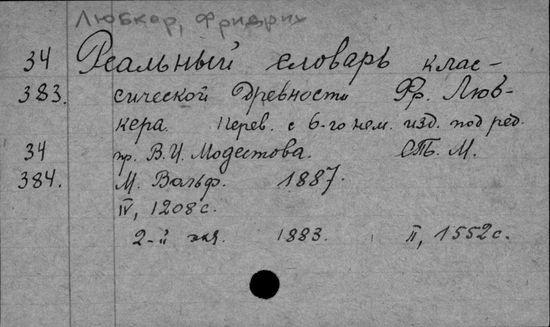 Любкер, Фридрих
34 Реальный словарь клас-
383. сической древности Фр. Люб-
кера. Перев. с 6-го нем. изд. под ред.
34 пр. В. И. Модестова. СПб. М.
384. М. Вольф. 1887.
IV, 1208 с.
2-й экз. 1883. II, 1552 с.